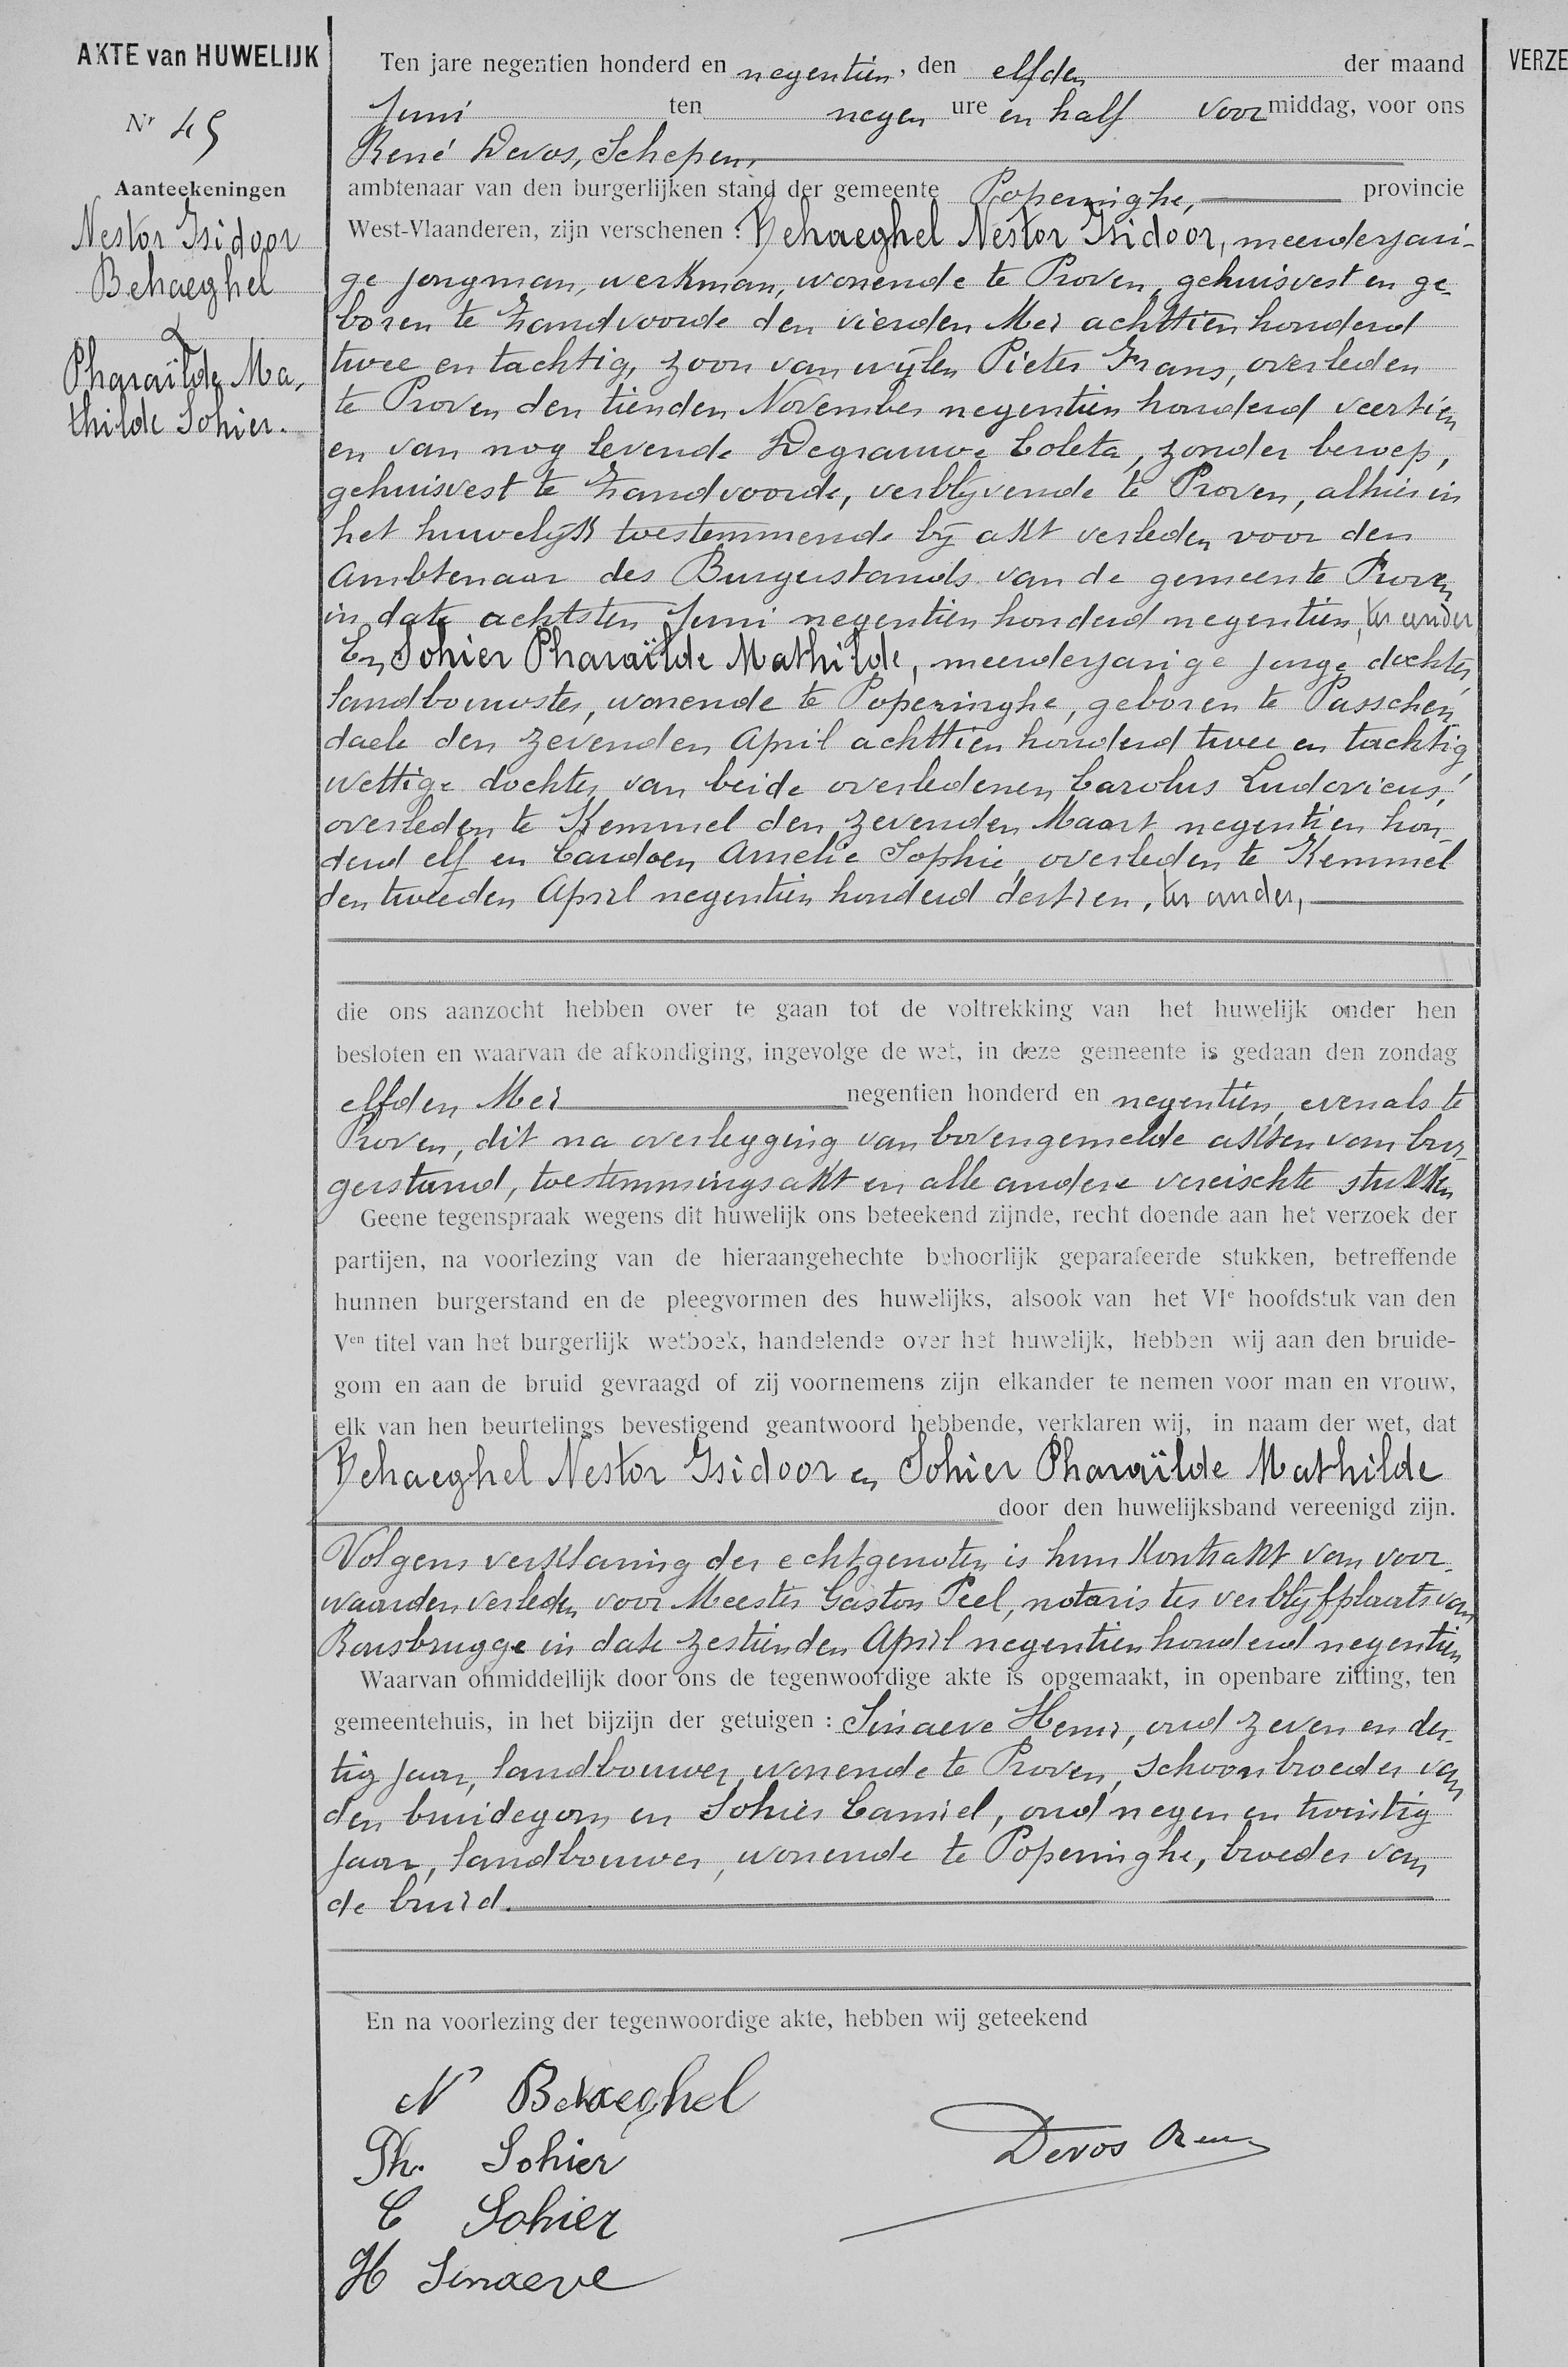 AKTE van HUWELIJK
Nr 45
Aanteekeningen
Nestor Isidoor
Behaeghel
&
Pharaïlde Ma,
thilde Sohier.
Ten jare negentien honderd en negentien, den elfden der maand
Juni ten negen ure en half voormiddag, voor ons
René Devos, Schepen,
ambtenaar van den burgerlijken stand der gemeente Poperinghe, provincie
West-Vlaanderen, zijn verschenen : Behaeghel Nestor Isidoor, meerderjari-
ge jongman, werkman, wonende te Proven, gehuisvest en ge-
boren te Zandvoorde den vierden Mei achttien honderd
twee en tachtig, zoon van wijlen Pieter Frans, overleden
te Proven den tienden November negentien honderd veertien
en van nog levende Degrauwe Coleta, zonder beroep,
gehuisvest te Zandvoorde, verblijvende te Proven, alhier in
het huwelijk toestemmende bij akt verleden voor den
Ambtenaar des Burgerstands van de gemeente Proven
in date achtsten Juni negentien honderd negentien, ter ander
En Sohier Pharaïlde Mathilde, meerderjarige jonge dochter,
landbouwster, wonende te Poperinghe, geboren te Passchen-
daele den zevenden April achttien honderd twee en tachtig,
wettige dochter van beide overledenen Carolus Ludovicus,
overleden te Kemmel den zevenden Maart negentien hon-
derd elf en Cardoen Amelie Sophie, overleden te Kemmel
den tweeden April negentien honderd dertien, ter ander,
die ons aanzocht hebben over te gaan tot de voltrekking van het huwelijk onder hen
besloten en waarvan de afkondiging, ingevolge de wet, in deze gemeente is gedaan den zondag
elfden Mei negentien honderd en negentien, evenals te
Proven, dit na overlegging van bovengemelde akten van bur-
gerstand, toestemmingsakt en alle andere vereischte stukken
Geene tegenspraak wegens dit huwelijk ons beteekend zijnde, recht doende aan het verzoek der
partijen, na voorlezing van de hieraangehechte behoorlijk geparafeerde stukken, betreffende
hunnen burgerstand en de pleegvormen des huwelijks, alsook van het VIe hoofdstuk van den
Ven titel van het burgerlijk wetboek, handelende over het huwelijk, hebben wij aan den bruide-
gom en aan de bruid gevraagd of zij voornemens zijn elkander te nemen voor man en vrouw,
elk van hen beurtelings bevestigend geantwoord hebbende, verklaren wij, in naam der wet, dat
Behaeghel Nestor Isidoor en Sohier Pharaïlde Mathilde
door den huwelijksband vereenigd zijn.
Volgens verklaring der echtgenoten is hun Kontrakt van voor-
waarden verleden voor Meester Gaston Peel, notaris ter verblijfplaats van
Rousbrugge in date zestienden April negentien honderd negentien
Waarvan onmiddellijk door ons de tegenwoordige akte is opgemaakt, in openbare zitting, ten
gemeentehuis, in het bijzijn der getuigen : Sinaeve Henri, oud zeven en der-
tig jaar, landbouwer, wonende te Proven, schoonbroeder van
den bruidegom en Sohier Camiel, oud negen en twintig
jaar, landbouwer, wonende te Poperinghe, broeder van
de bruid.
En na voorlezing der tegenwoordige akte, hebben wij geteekend
N Behaeghel
Ph. Sohier
C Sohier
H Sinaeve
Devos Rene
VERZE